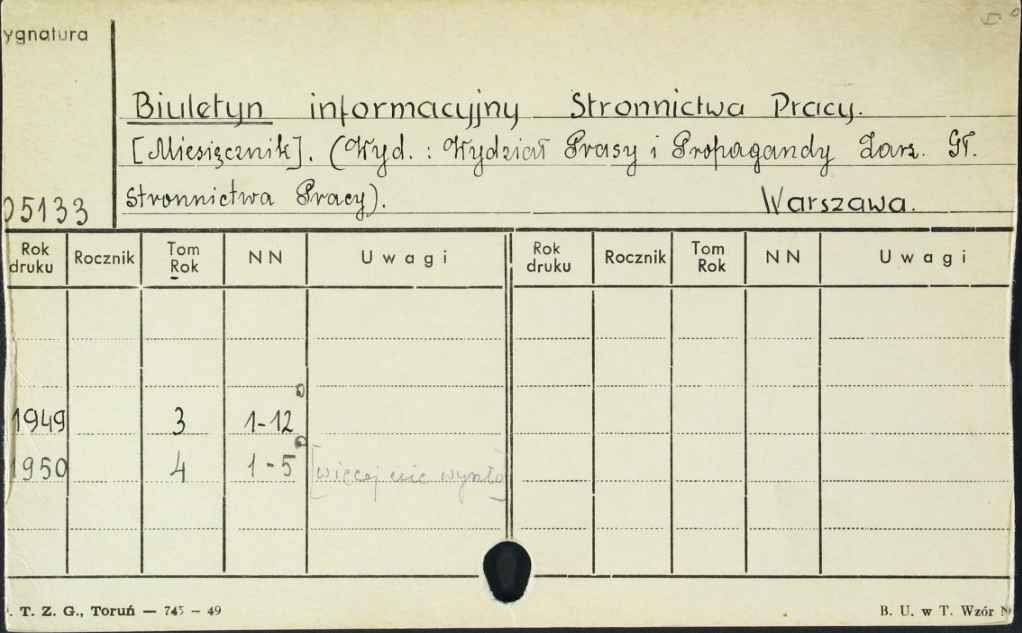 ygnatura
Biuletyn informacyjny Stronnictwa Pracy.
[Miesięcznik]. (Wyd.: Wydział Prasy i Propagandy Zarz. Gł.
Stronnictwa Pracy). Warszawa.
05133
Rok druku Rocznik Tom Rok NN Uwagi Rok druku Rocznik Tom Rok NN Uwagi
1949 3 1-12
1950 4 1-5 [więcej nie wyszło]
. T. Z. G., Toruń — 745 — 49 B. U. w T. Wzór